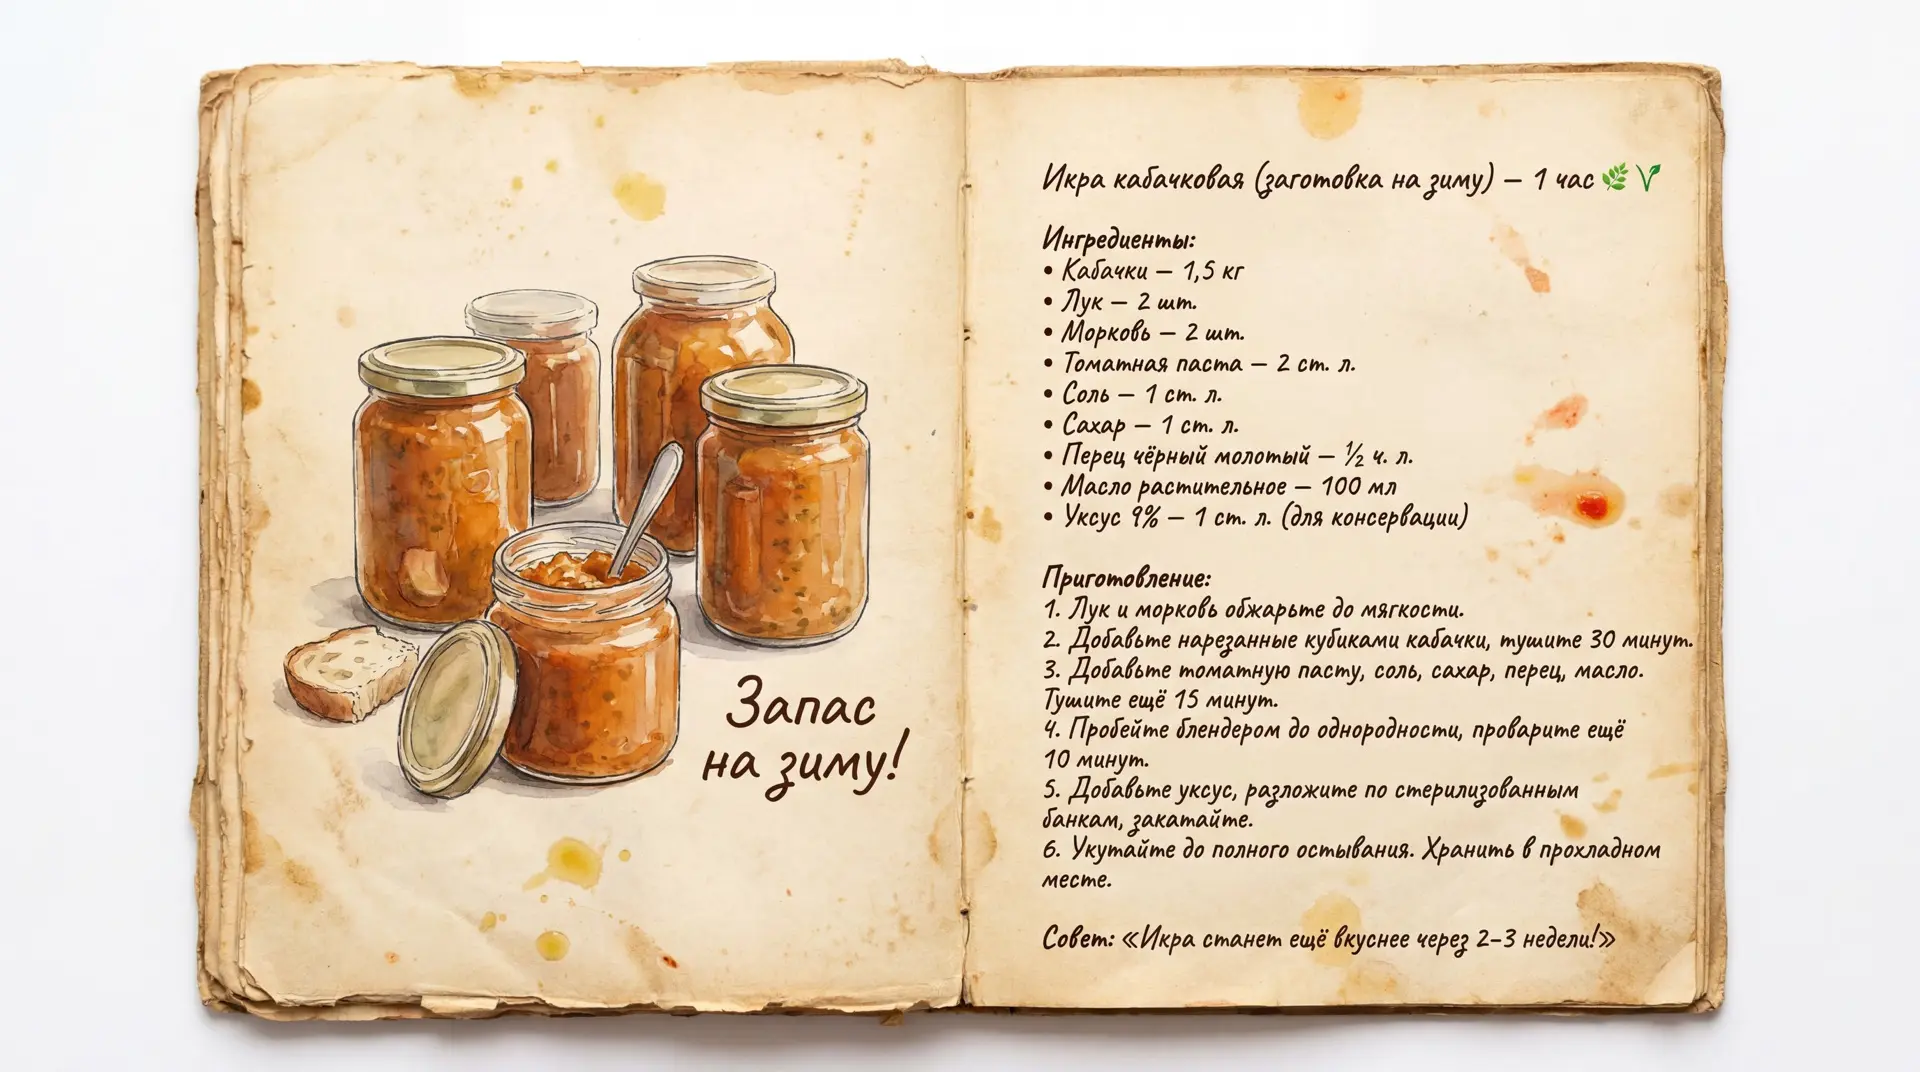 Запас
на зиму!
Икра кабачковая (заготовка на зиму) – 1 час 🌿 V
Ингредиенты:
• Кабачки – 1,5 кг
• Лук – 2 шт.
• Морковь – 2 шт.
• Томатная паста – 2 ст. л.
• Соль – 1 ст. л.
• Сахар – 1 ст. л.
• Перец чёрный молотый – ½ ч. л.
• Масло растительное – 100 мл
• Уксус 9% – 1 ст. л. (для консервации)
Приготовление:
1. Лук и морковь обжарьте до мягкости.
2. Добавьте нарезанные кубиками кабачки, тушите 30 минут.
3. Добавьте томатную пасту, соль, сахар, перец, масло.
Тушите ещё 15 минут.
4. Пробейте блендером до однородности, проварите ещё
10 минут.
5. Добавьте уксус, разложите по стерилизованным
банкам, закатайте.
6. Укутайте до полного остывания. Хранить в прохладном
месте.
Совет: «Икра станет ещё вкуснее через 2–3 недели!»